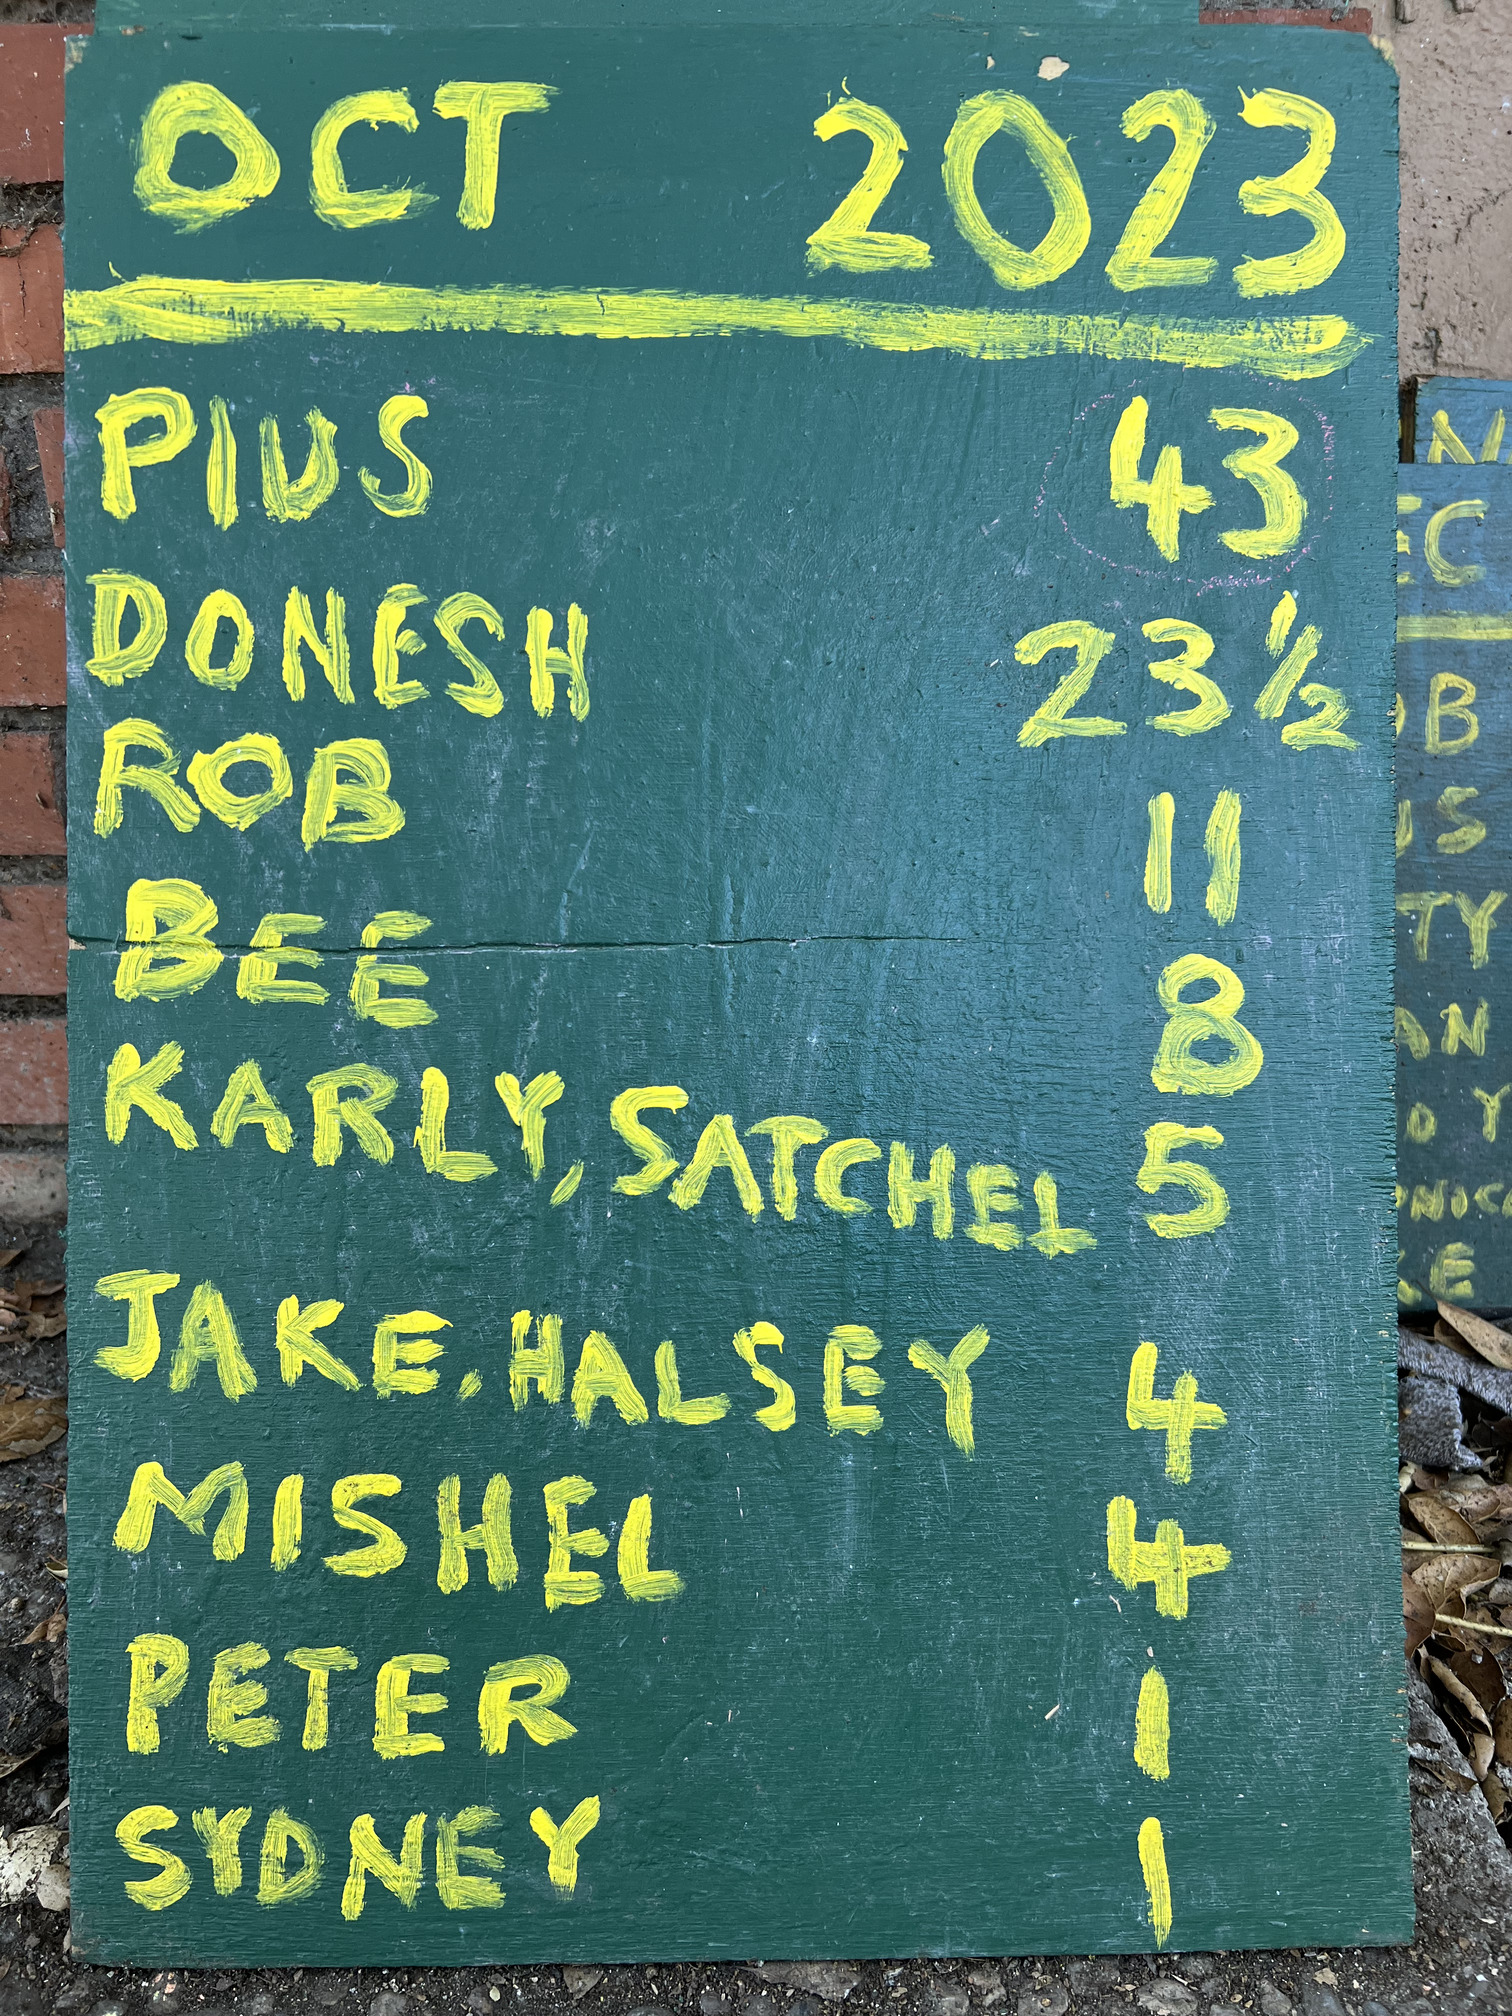 OCT 2023
PIUS 43
DONESH 23 ½
ROB 11
BEE 8
KARLY, SATCHEL 5
JAKE. HALSEY 4
MISHEL 4
PETER 1
SYDNEY 1